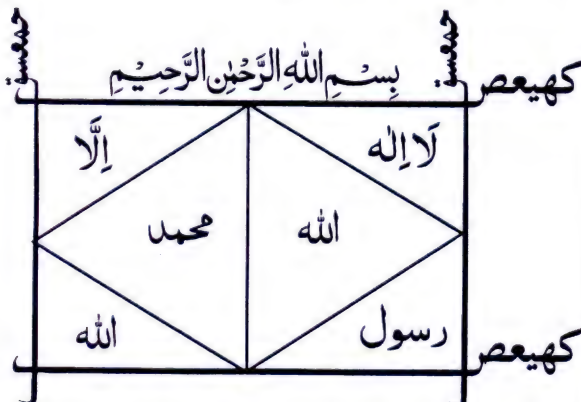 حمعسق
حمعسق
بِسْمِ اللهِ الرَّحْمٰنِ الرَّحِيْمِ
كهيعص
لَا اِلٰه
اِلَّا
الله
محمد
رسول
الله
كهيعص